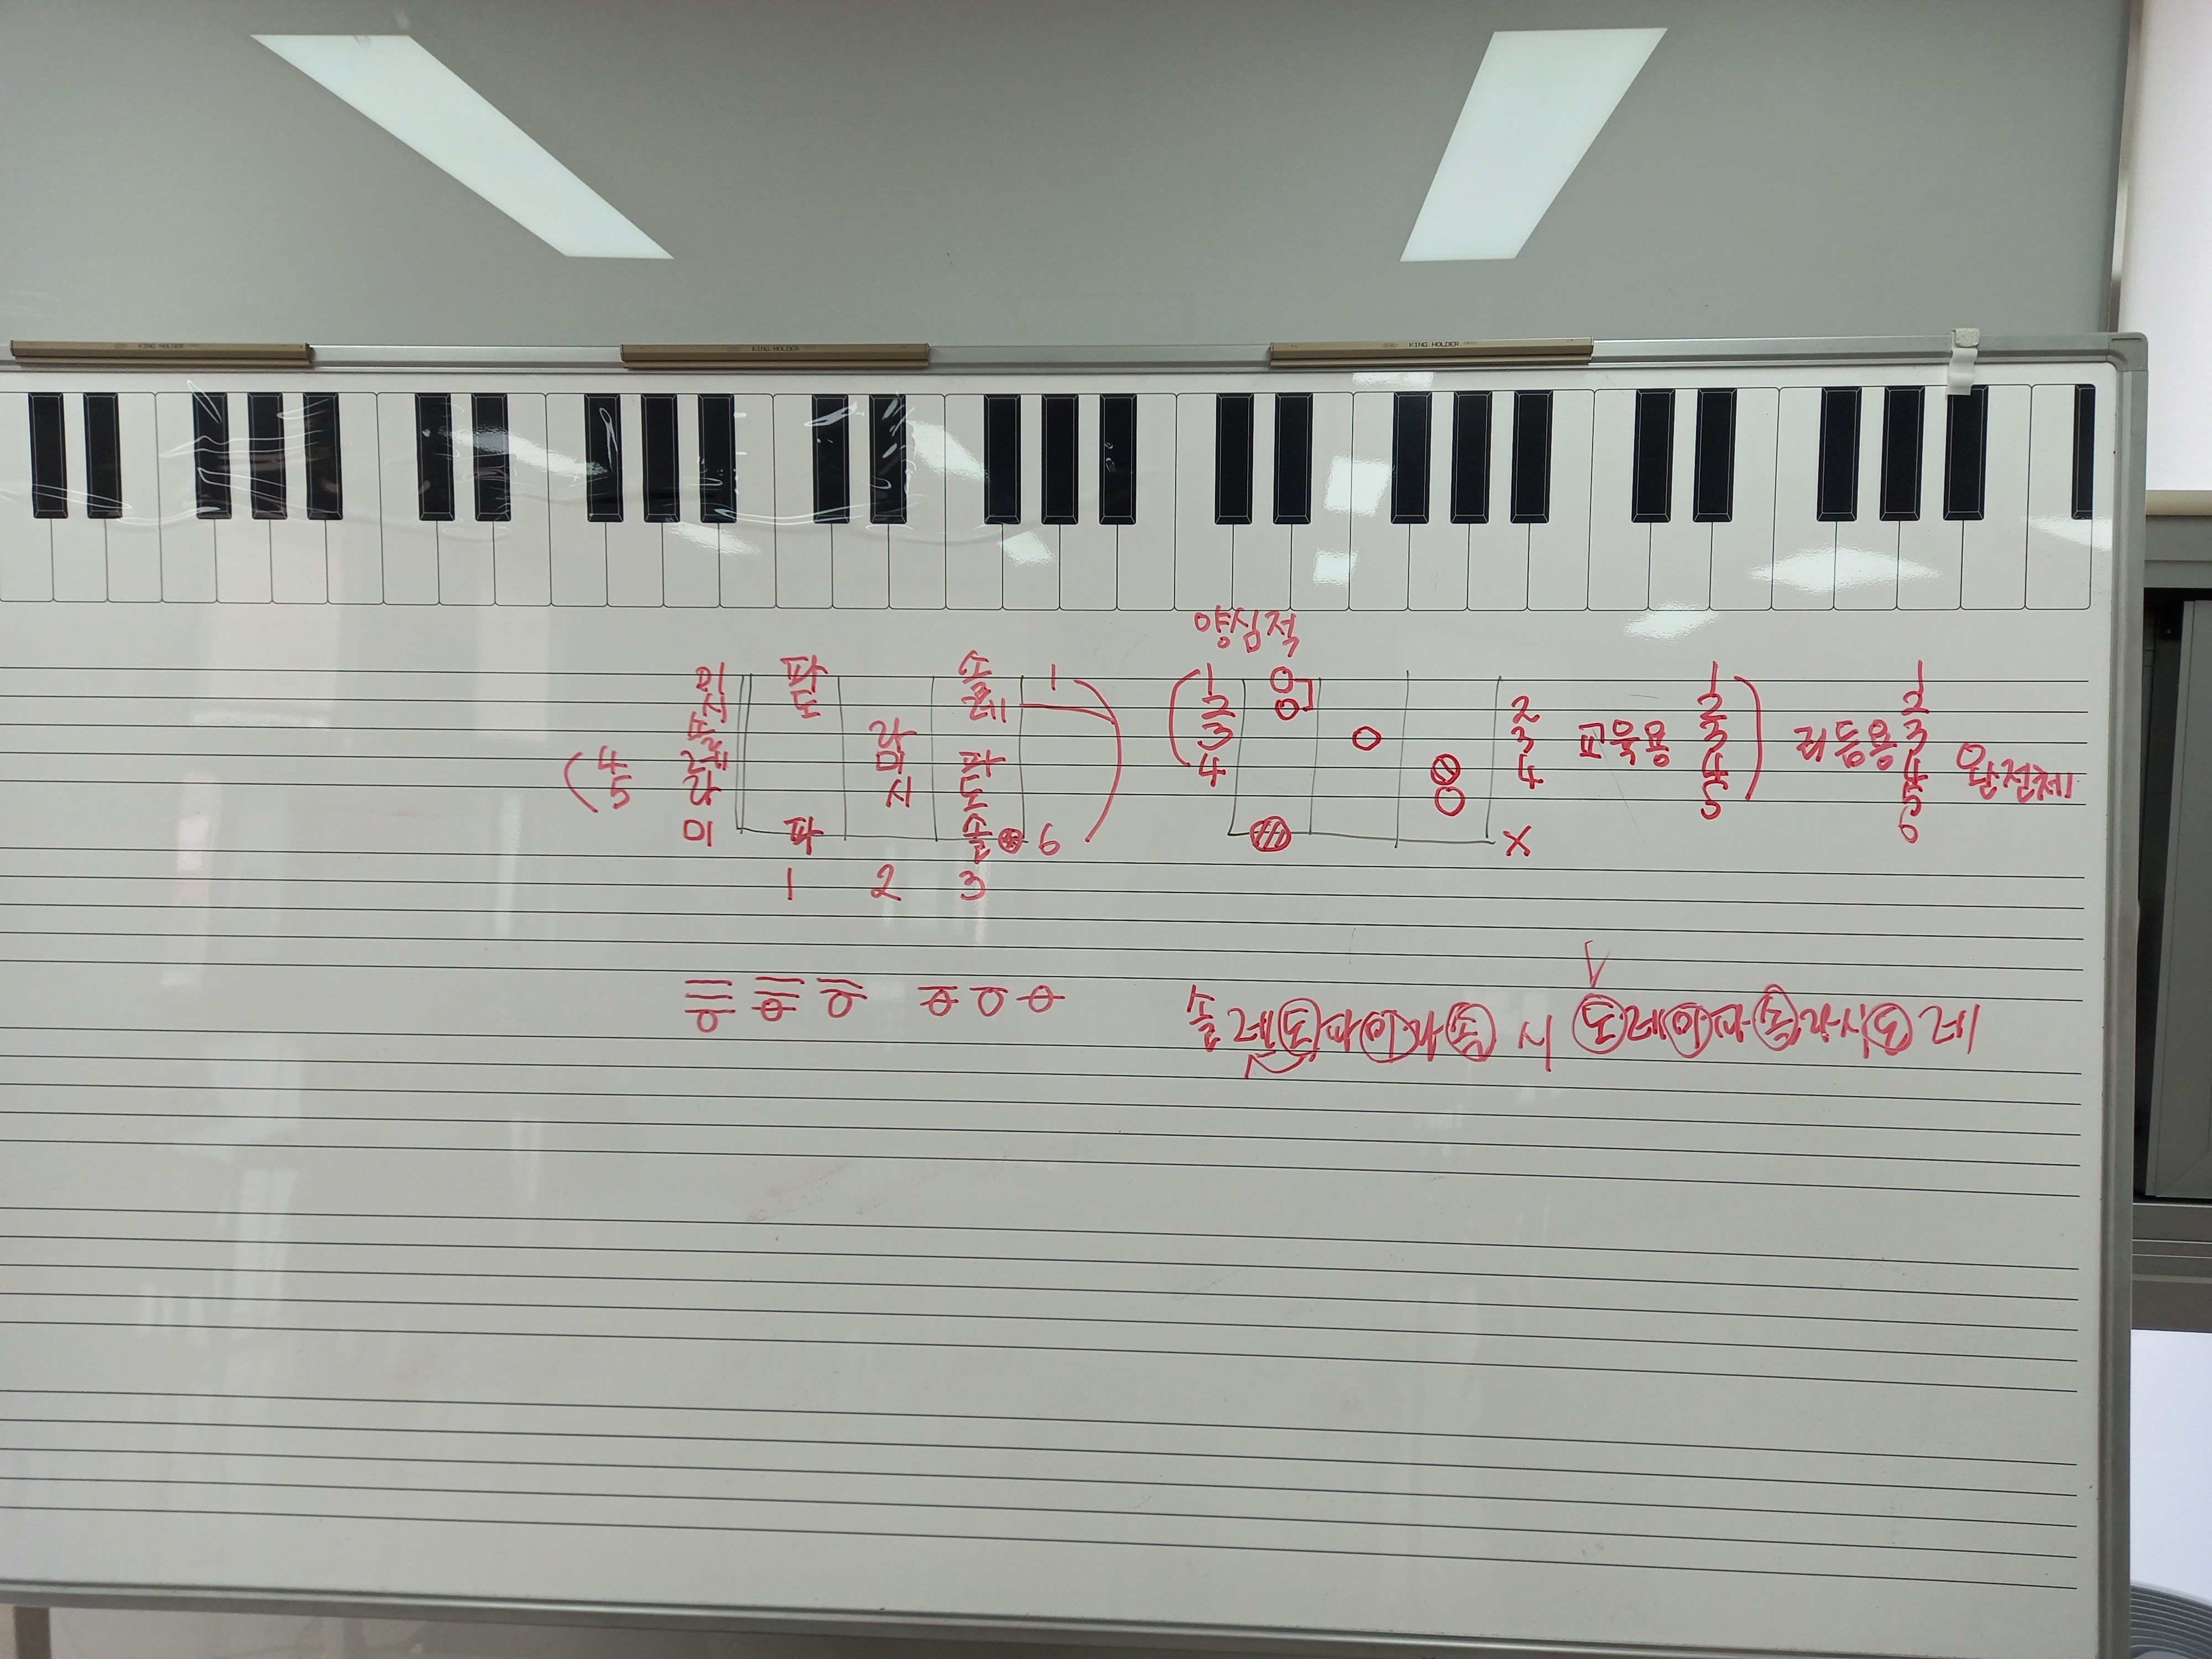 KING HOLDER KING HOLDER KING HOLDER
양심적
미 파 솔 1 1 1 1
시 도 레 2 2 2 2
솔 라 3 3 교육용 3 리듬용 3
4 레 미 파 4 4 4 4 완전체
5 라 시 도 5 5
미 파 솔 6 X 6
1 2 3
솔 레 도 파 미 라 솔 시 도 레 미 파 솔 라 시 도 레